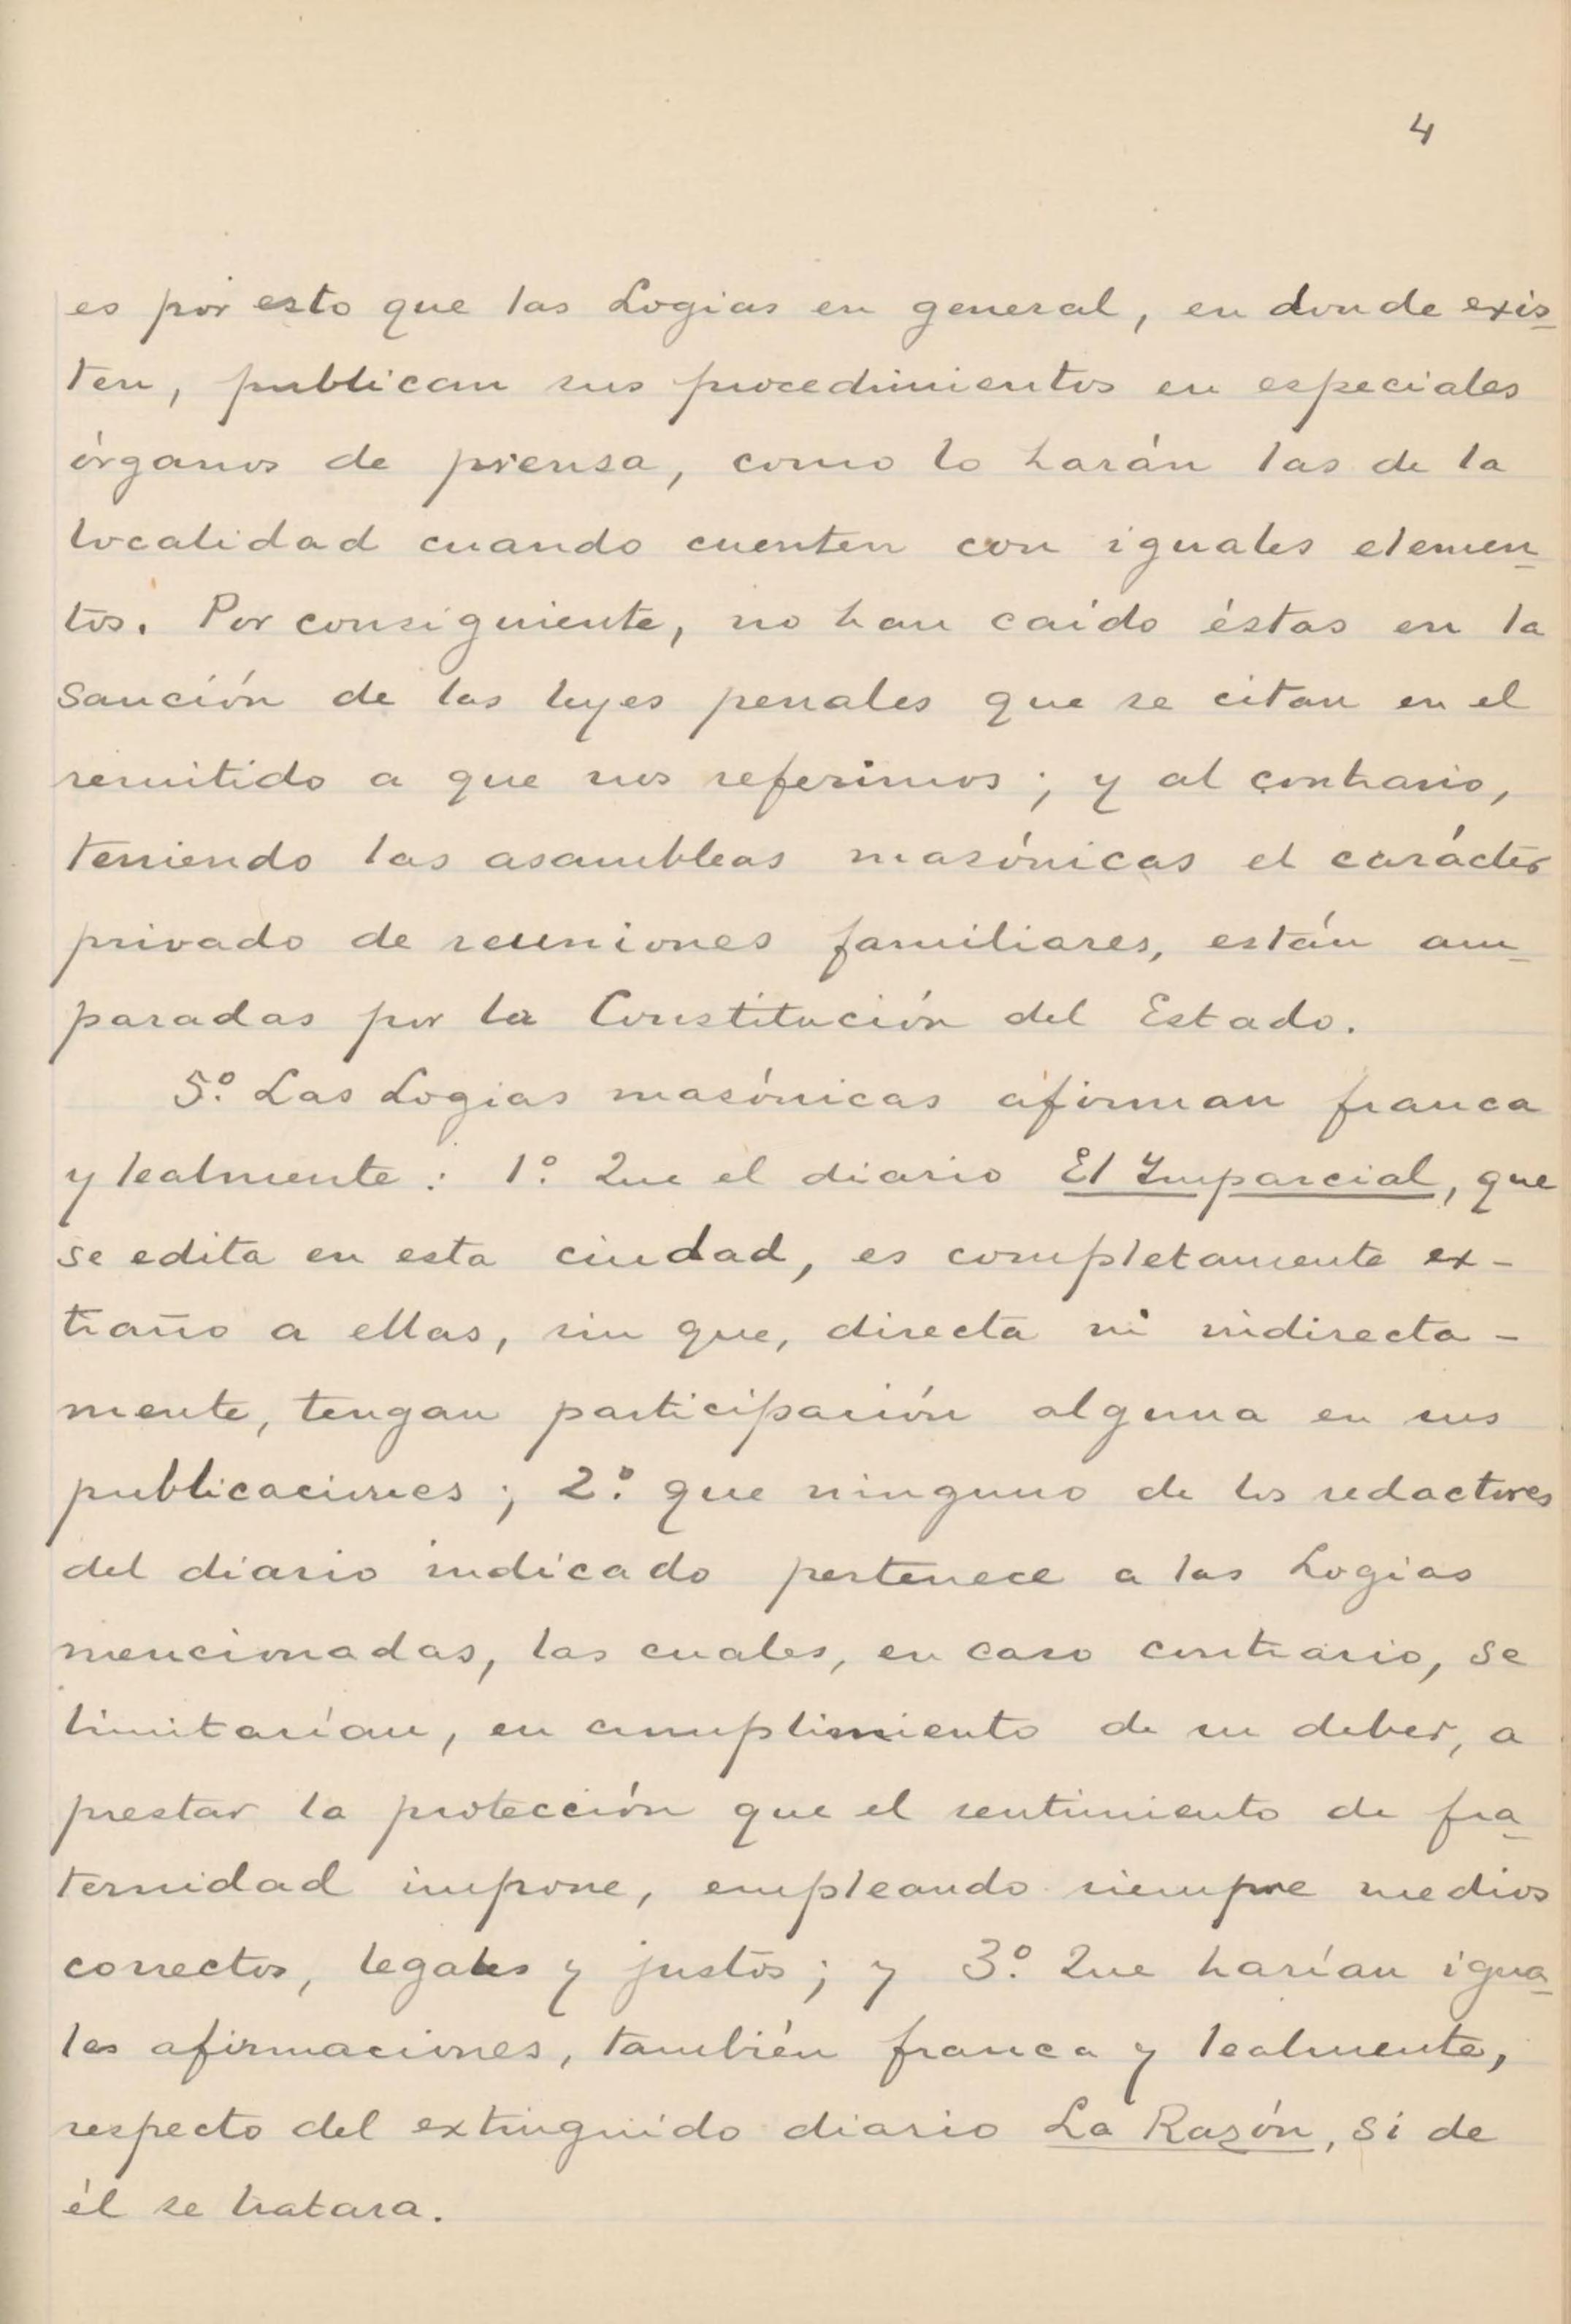 4
es por esto que las Logias en general, en donde exis-
ten, publican sus procedimientos en especiales
órganos de prensa, como lo harán las de la
localidad cuando cuenten con iguales elemen-
tos. Por consiguiente, no han caído éstas en la
sanción de las leyes penales que se citan en el
remitido a que nos referimos; y al contrario,
teniendo las asambleas masónicas el carácter
privado de reuniones familiares, están am-
paradas por la Constitución del Estado.
5º. Las Logias masónicas afirman franca
y lealmente: 1º. Que el diario El Imparcial, que
se edita en esta ciudad, es completamente ex-
traño a ellas, sin que, directa ni indirecta-
mente, tengan participación alguna en sus
publicaciones; 2º. que ninguno de los redactores
del diario indicado pertenece a las Logias
mencionadas, las cuales, en caso contrario, se
limitarían, en cumplimiento de su deber, a
prestar la protección que el sentimiento de fra-
ternidad impone, empleando siempre medios
correctos, legales y justos; y 3º. Que harían igua-
les afirmaciones, también franca y lealmente,
respecto del extinguido diario La Razón, si de
él se tratara.